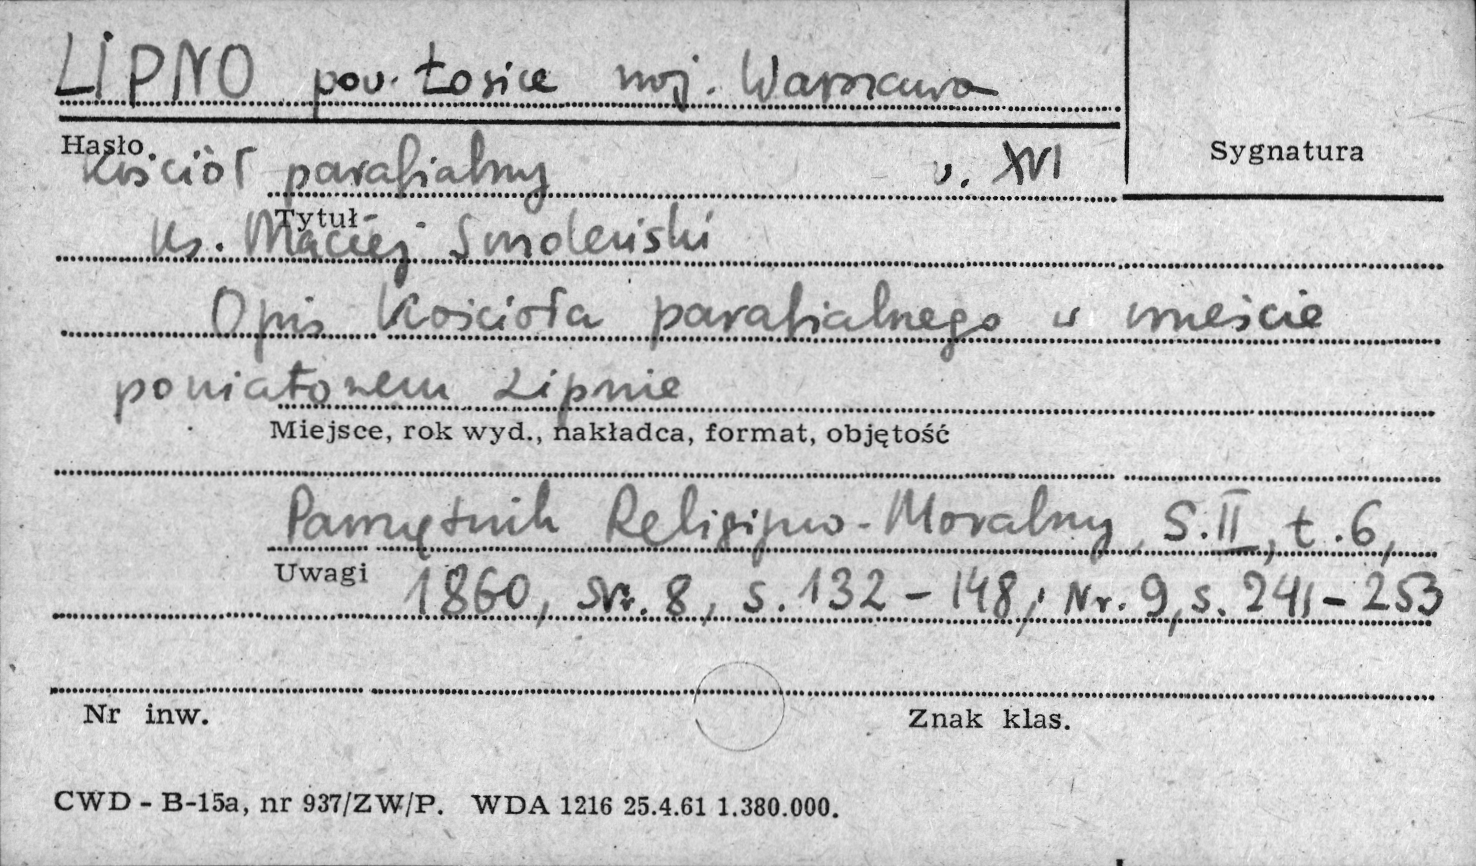 LIPNO pow. Łosice woj. Warszawa
Hasło
Sygnatura
Kościół parafialny w. XVI
Tytuł
Ks. Maciej Smoleński
Opis Kościoła parafialnego w mieście
powiatowem Lipnie
Miejsce, rok wyd., nakładca, format, objętość
Pamiętnik Religijno-Moralny, S.II, t.6,
Uwagi
1860, Nr. 8, s. 132-148; Nr. 9, s. 241-253
Nr inw.
Znak klas.
CWD - B-15a, nr 937/ZW/P. WDA 1216 25.4.61 1.380.000.